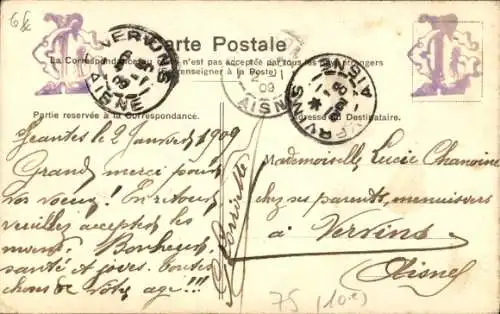 6f
Carte Postale
La Correspondance au recto n'est pas acceptée par tous les pays étrangers
(Se renseigner à la Poste)
VERVINS
AISNE
2
09
AISNE
VERVINS
AISNE
Partie réservée à la Correspondance.
Adresse du Destinataire.
Jeantes le 2 Janvier 1909
Grand merci pour
vos voeux! En retour
veuillez accepter les
miens. Bonheur,
santé et joies. Toutes
choses de votre age!!!
Mademoiselle Lucie Chanoine
chez ses parents, menuisiers
à Vervins
(Aisne)
75 (10e)